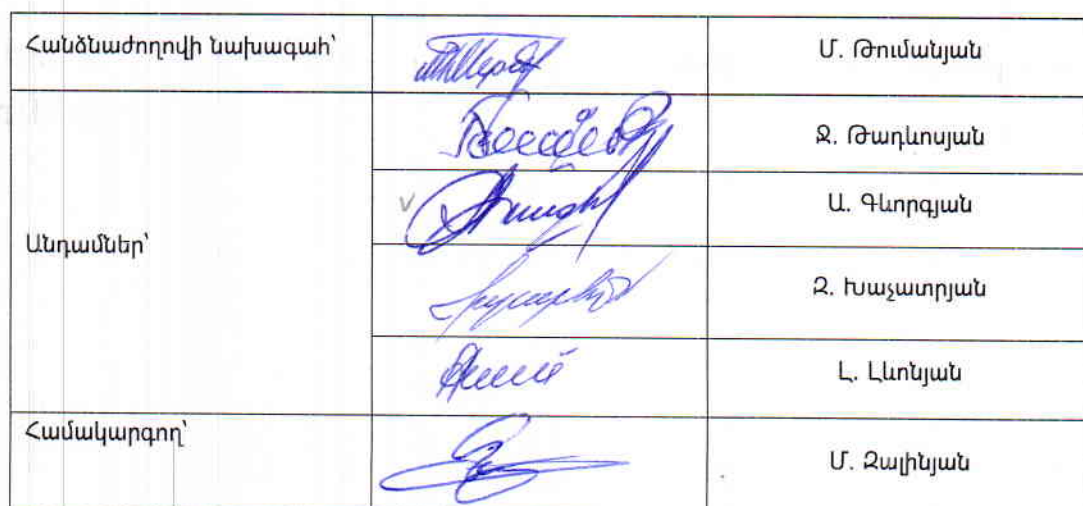 Հանձնաժողովի նախագահ՝
Մ. Թումանյան
Ջ. Թադևոսյան
Ա. Գևորգյան
Անդամներ՝
Զ. Խաչատրյան
Լ. Լևոնյան
Համակարգող՝
Մ. Զալինյան